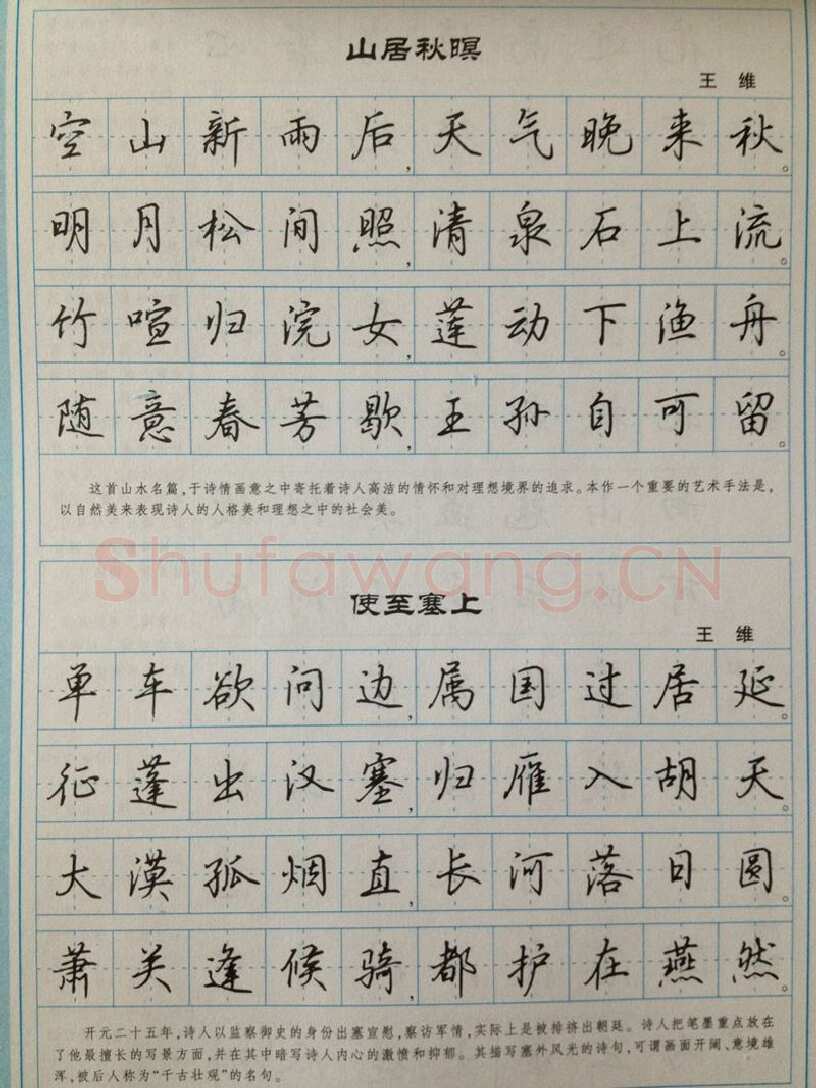 山居秋暝
王 维
空山新雨后,天气晚来秋。
明月松间照,清泉石上流。
竹喧归浣女,莲动下渔舟。
随意春芳歇,王孙自可留。
这首山水名篇,于诗情画意之中寄托着诗人高洁的情怀和对理想境界的追求。本作一个重要的艺术手法是,
以自然美来表现诗人的人格美和理想之中的社会美。
Shufawang.CN
使至塞上
王 维
单车欲问边,属国过居延。
征蓬出汉塞,归雁入胡天。
大漠孤烟直,长河落日圆。
萧关逢候骑,都护在燕然。
开元二十五年,诗人以监察御史的身份出塞宣慰,察访军情,实际上是被排挤出朝廷。诗人把笔墨重点放在
了他最擅长的写景方面,并在其中暗写诗人内心的激愤和抑郁。其描写塞外风光的诗句,可谓画面开阔、意境雄
浑,被后人称为“千古壮观”的名句。